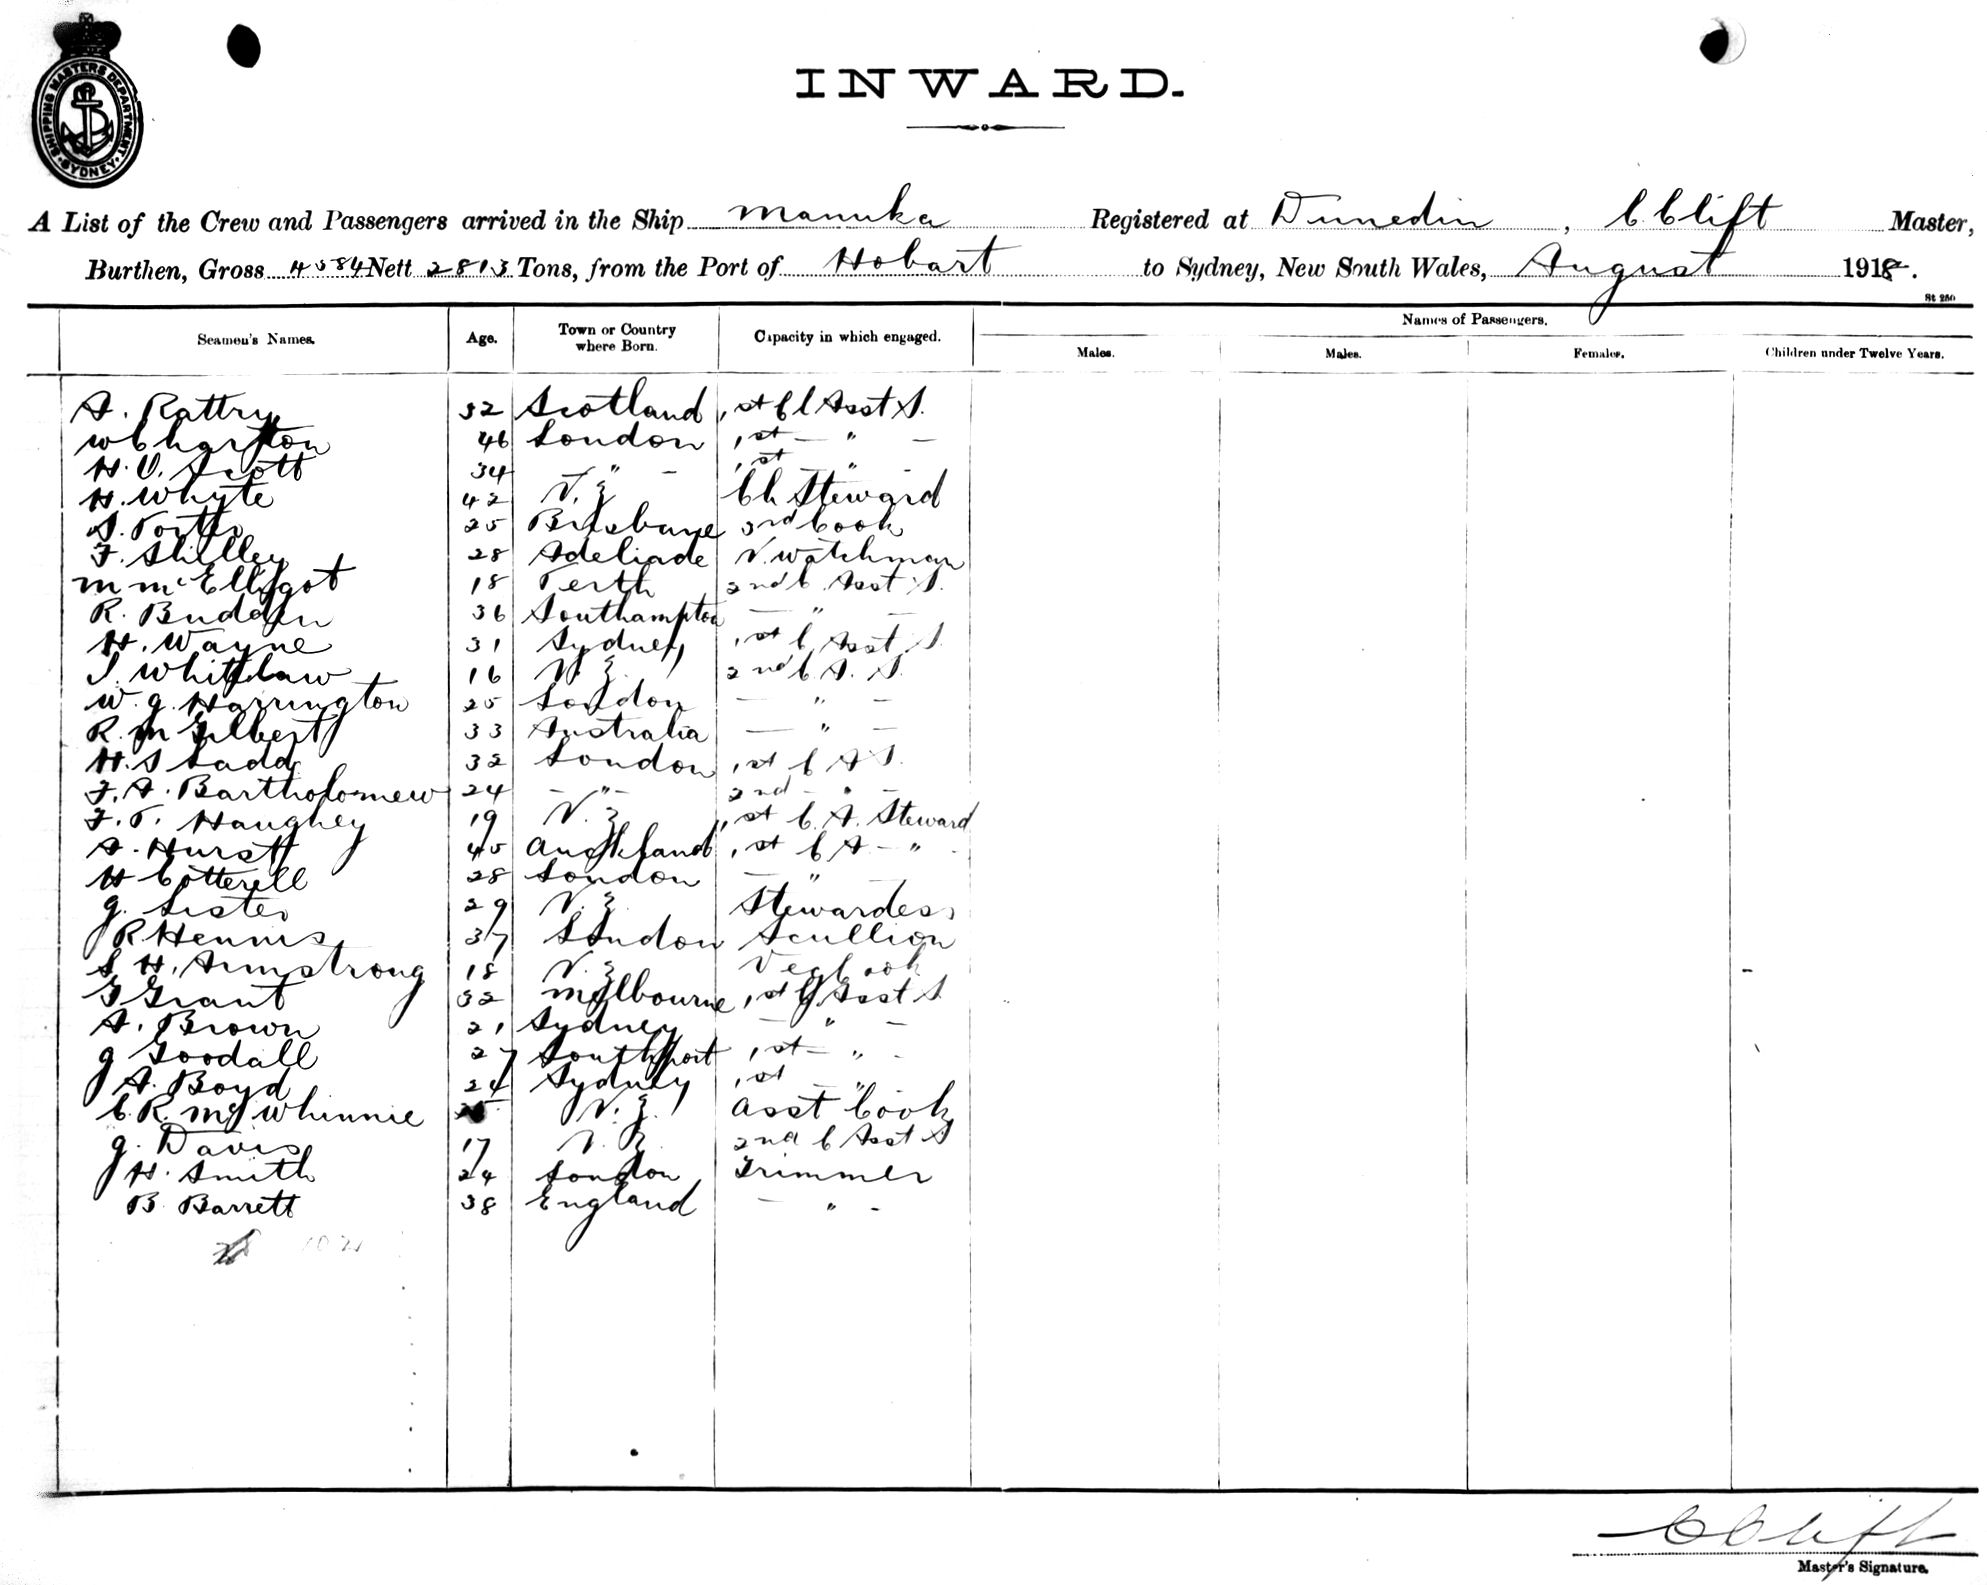 SHIPPING MASTERS DEPARTMENT. SYDNEY
INWARD.
A List of the Crew and Passengers arrived in the Ship Manuka Registered at Dunedin, C Clift Master,
Burthen, Gross 4584 Nett 2813 Tons, from the Port of Hobart to Sydney, New South Wales, August 1918.
St 250
Names of Passengers.
Seamen's Names. Age. Town or Country where Born. Capacity in which engaged. Males. Males. Females. Children under Twelve Years.
A. Rattry 32 Scotland 1st Cl Asst S.
W Charlton 46 London 1st — " —
H. V. Scott 34 — " — 1st — " —
H. Whyte 42 N. Z Ch Steward
25 Brisbane 3rd Cook
F. Shilley 28 Adeliade N. Watchman
M McElligot 18 Perth 2nd C. Asst S.
R. Budden 36 Southampton — " —
H. Wayne 31 Sydney 1st C Asst S.
J. Whitelaw 16 N. Z. 2nd C. A. S.
W. G. Harrington 25 London — " —
R. M Gilbert 33 Australia — " —
H. S Ladd 32 London 1st C A S.
F. A. Bartholomew 24 — " — 2nd — " —
F. P. Haughey 19 N. Z 1st C. A. Steward
A. Hurst 45 Auckland 1st C A — "
H Cotterell 28 London — " —
G. Lister 29 N. Z. Stewardess
R Hennis 37 London Scullion
S. H. Armstrong 18 N. Z Veg Cook
G Grant 32 Melbourne 1st C Asst S
A. Brown 21 Sydney — " —
G Goodall 27 Southport 1st — " -
A. Boyd 24 Sydney 1st — "
C. R. McWhinnie N. Z. Asst Cook
G. Davis 17 N. Z. 2nd C Asst S
H. Smith 24 London Trimmer
B. Barrett 38 England — " -
C Clift
Master's Signature.